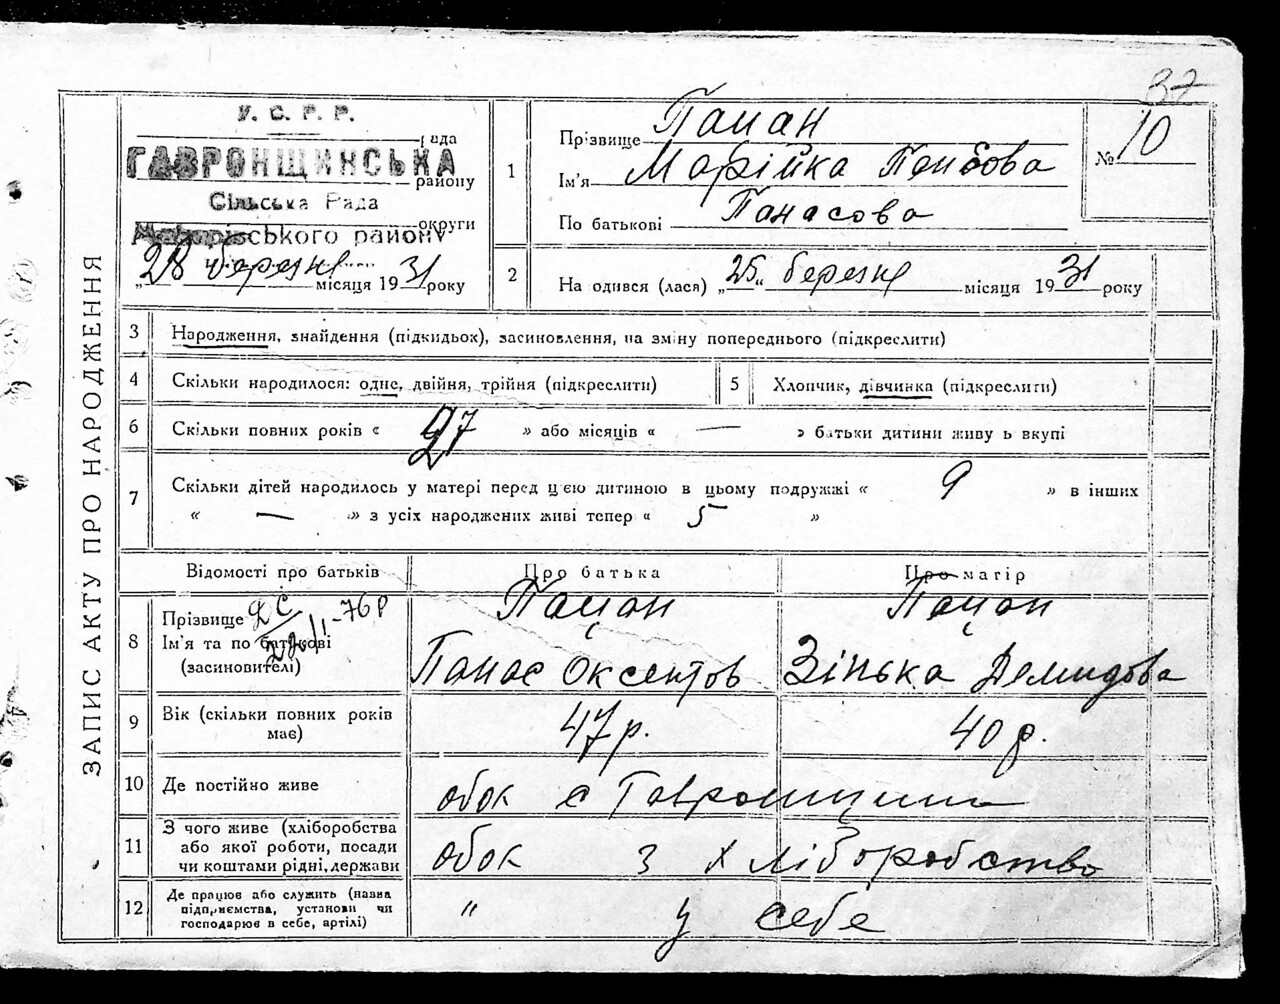 37
У. С. Р. Р.
рада
ГАВРОНЩИНСЬКА
району
Сільська Рада
округи
Макарівського району
„28 березня місяця 1931 року
1
Прізвище Пацан
Ім'я Марійка
По батькові Панасова
№ 10
2
На одився (лася) „25“ березня місяця 1931 року
ЗАПИС АКТУ ПРО НАРОДЖЕННЯ
3 Народження, знайдення (підкидьок), засиновлення, на зміну попереднього (підкреслити)
4 Скільки народилося: одне, двійня, трійня (підкреслити)
5 Хлопчик, дівчинка (підкреслити)
6 Скільки повних років « 27 » або місяців « — » батьки дитини живу ь вкупі
7 Скільки дітей народилось у матері перед цією дитиною в цьому подружжі « 9 » в інших
« — » з усіх народжених живі тепер « 5 »
Відомості про батьків
Про батька
Про матір
8
Прізвище
Ім'я та по батькові
(засиновителі)
Пацан
Панас Оксентов
Пацан
Зінька Демидова
9
Вік (скільки повних років
має)
47 р.
40 р.
10 Де постійно живе
обок с Гавронщина
11
З чого живе (хліборобства
або якої роботи, посади
чи коштами рідні, держави
обок з хліборобства
12
Де працює або служить (назва
підприємства, установи чи
господарює в себе, артілі)
" у себе